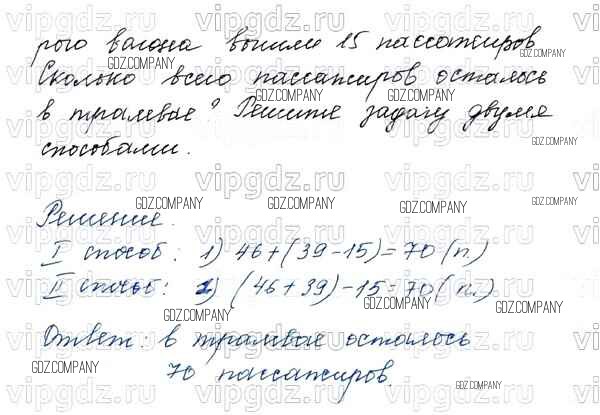 рого вагона вышли 15 пассажиров
Сколько всего пассажиров осталось
в трамвае? Решите задачу двумя
способами.
Решение.
I способ: 1) 46+(39-15)=70 (п.)
II способ: 1) (46+39)-15=70 (п.)
Ответ: в трамвае осталось
70 пассажиров.
vipgdz.ru
GDZ.COMPANY